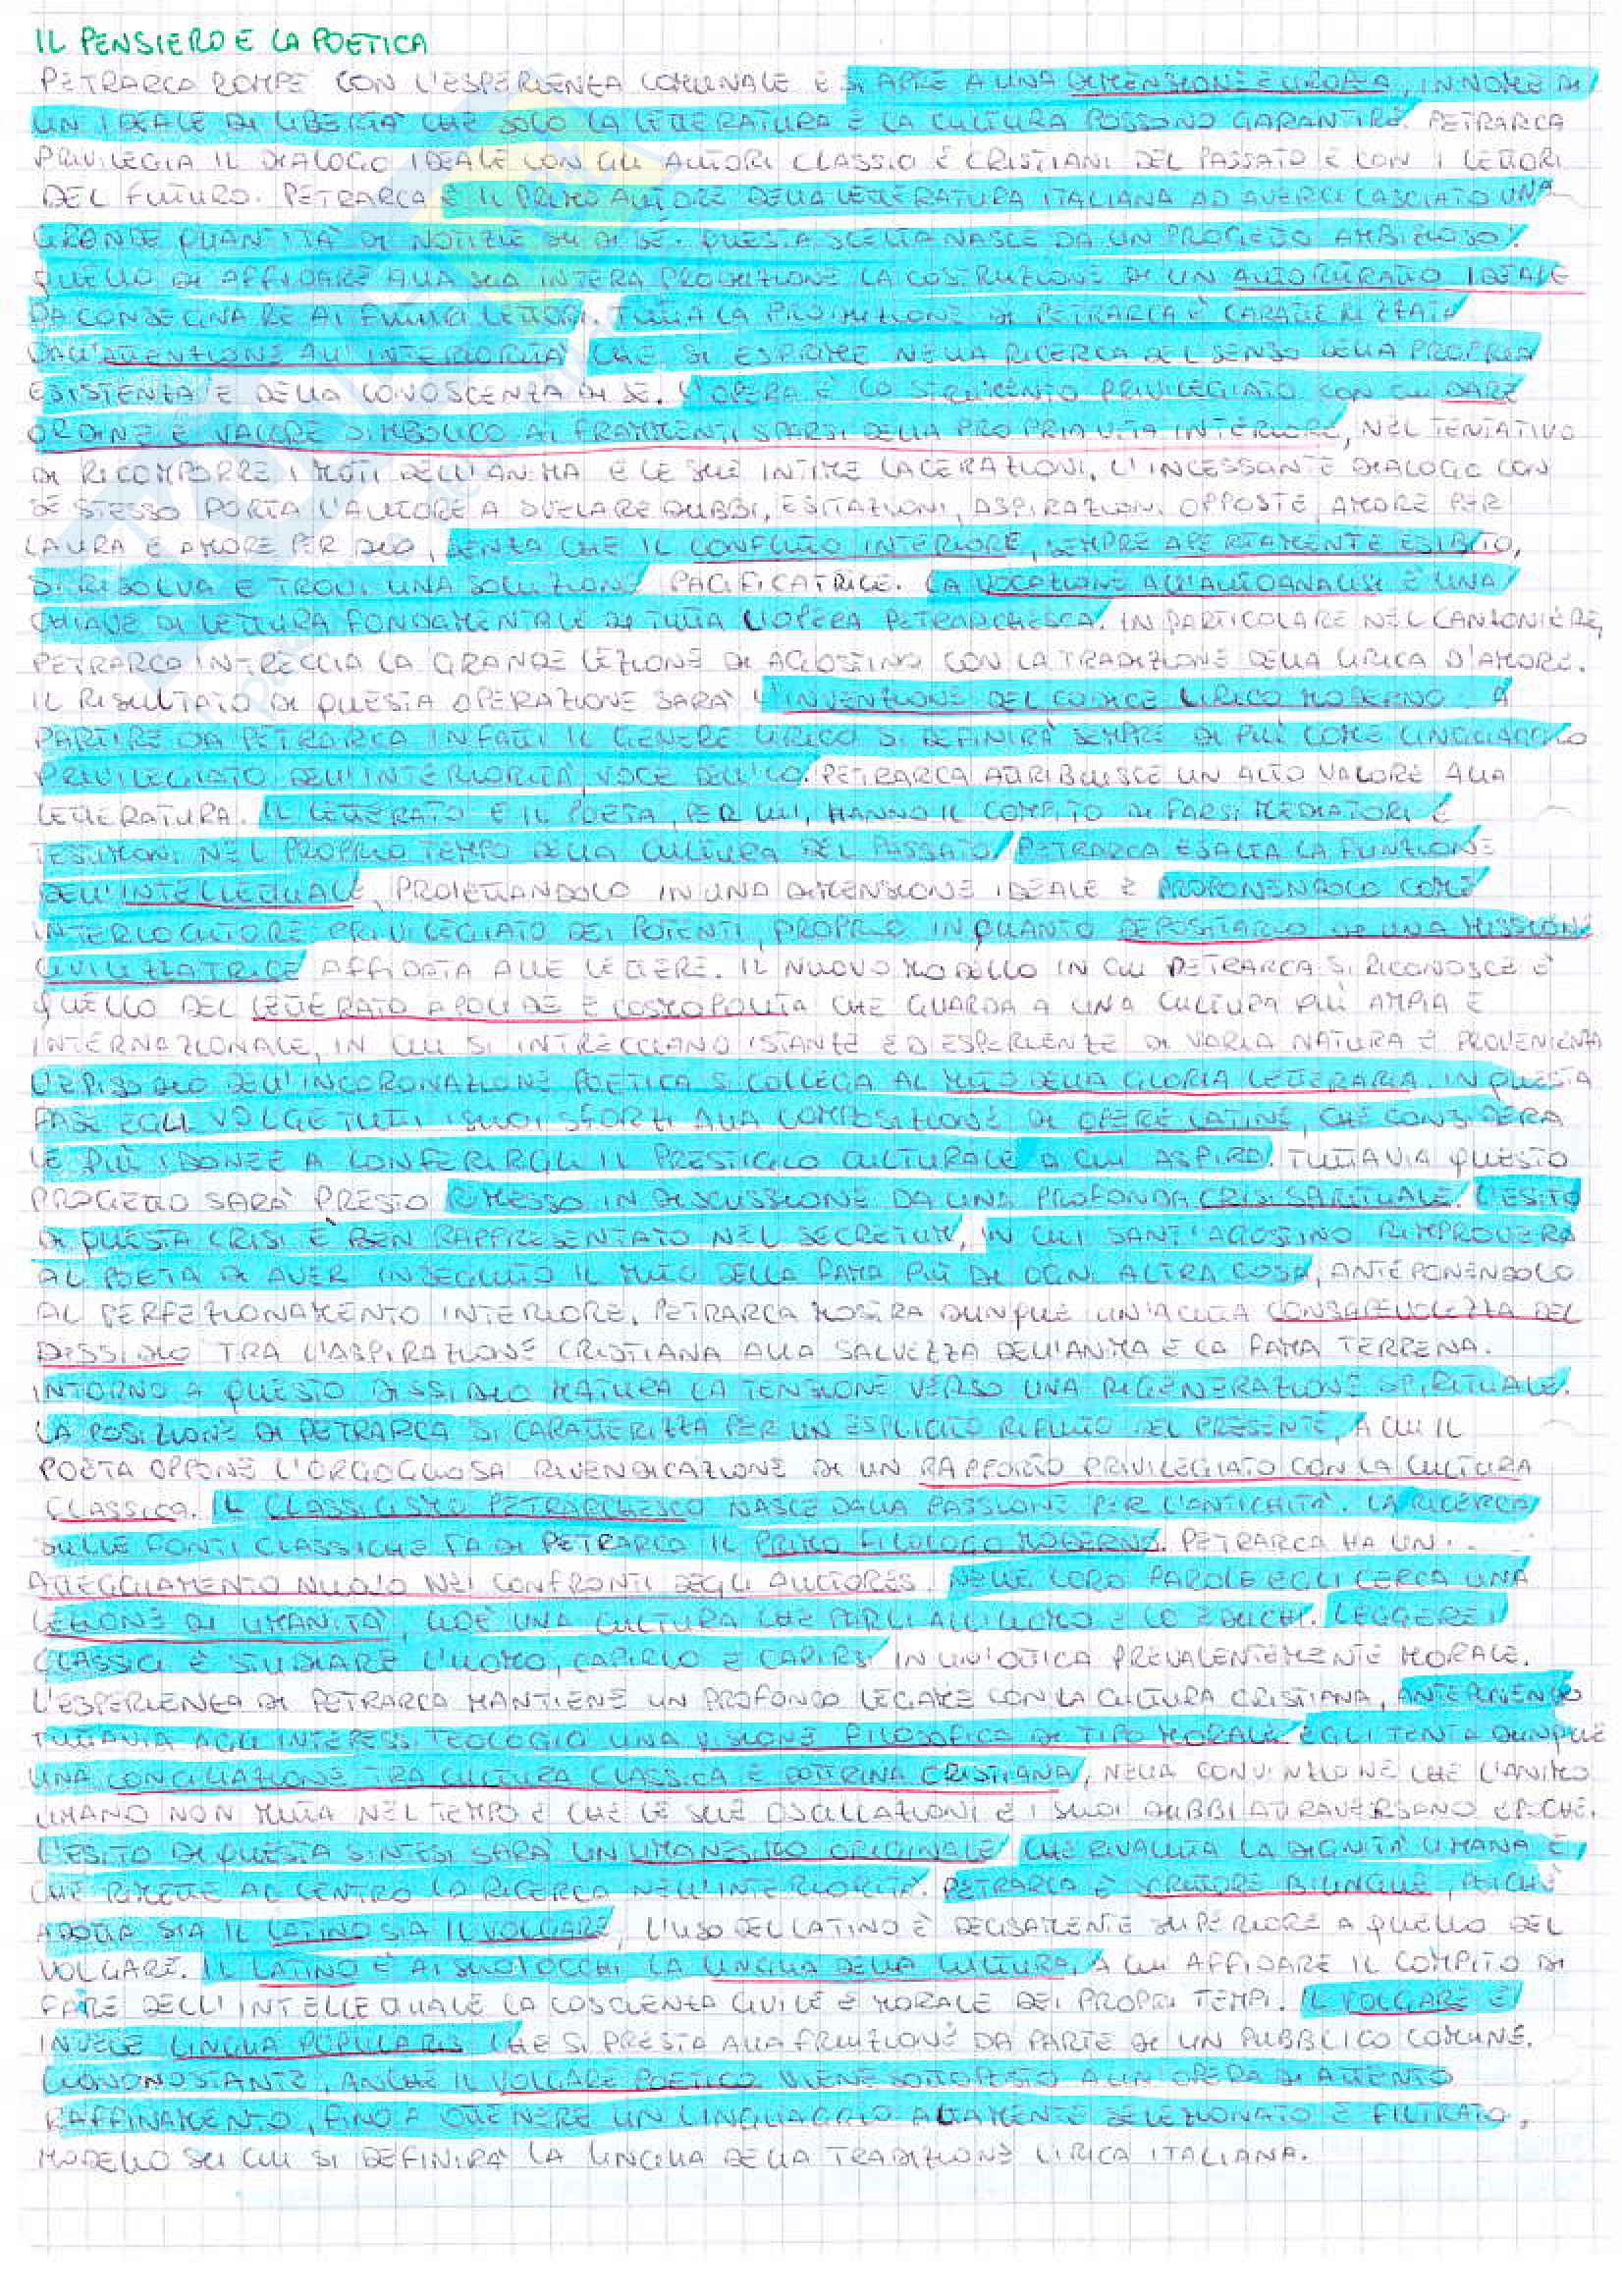 IL PENSIERO E LA POETICA
PETRARCA ROMPE CON L'ESPERIENZA COMUNALE E SI APRE A UNA DIMENSIONE EUROPEA, IN NOME DI
UN IDEALE DI LIBERTÀ CHE SOLO LA LETTERATURA E LA CULTURA POSSONO GARANTIRE. PETRARCA
PRIVILEGIA IL DIALOGO IDEALE CON GLI AUTORI CLASSICI E CRISTIANI DEL PASSATO E CON I LETTORI
DEL FUTURO. PETRARCA È IL PRIMO AUTORE DELLA LETTERATURA ITALIANA AD AVERCI LASCIATO UNA
GRANDE QUANTITÀ DI NOTIZIE SU DI SÉ. QUESTA SCELTA NASCE DA UN PROGETTO AMBIZIOSO:
QUELLO DI AFFIDARE ALLA SUA INTERA PRODUZIONE LA COSTRUZIONE DI UN AUTORITRATTO IDEALE
DA CONSEGNARE AI FUTURI LETTORI. TUTTA LA PRODUZIONE DI PETRARCA È CARATTERIZZATA
DALL'ATTENZIONE ALL'INTERIORITÀ CHE SI ESPRIME NELLA RICERCA DEL SENSO DELLA PROPRIA
ESISTENZA E DELLA CONOSCENZA DI SÉ. L'OPERA È LO STRUMENTO PRIVILEGIATO CON CUI DARE
ORDINE E VALORE SIMBOLICO AI FRAMMENTI SPARSI DELLA PROPRIA VITA INTERIORE, NEL TENTATIVO
DI RICOMPORRE I MOTI DELL'ANIMA E LE SUE INTIME LACERAZIONI. L'INCESSANTE DIALOGO CON
SE STESSO PORTA L'AUTORE A SVELARE DUBBI, ESITAZIONI, ASPIRAZIONI OPPOSTE, AMORE PER
LAURA E AMORE PER DIO, SENZA CHE IL CONFLITTO INTERIORE, SEMPRE APERTAMENTE ESIBITO,
SI RISOLVA E TROVI UNA SOLUZIONE PACIFICATRICE. LA VOCAZIONE ALL'AUTOANALISI È UNA
CHIAVE DI LETTURA FONDAMENTALE DI TUTTA L'OPERA PETRARCHESCA. IN PARTICOLARE NEL CANZONIERE,
PETRARCA INTRECCIA LA GRANDE LEZIONE DI AGOSTINO CON LA TRADIZIONE DELLA LIRICA D'AMORE.
IL RISULTATO DI QUESTA OPERAZIONE SARÀ L'INVENZIONE DEL CODICE LIRICO MODERNO. A
PARTIRE DA PETRARCA INFATTI IL GENERE LIRICO SI DEFINIRÀ SEMPRE DI PIÙ COME LINGUAGGIO
PRIVILEGIATO DELL'INTERIORITÀ, VOCE DELL'IO. PETRARCA ATTRIBUISCE UN ALTO VALORE ALLA
LETTERATURA. IL LETTERATO E IL POETA, PER LUI, HANNO IL COMPITO DI FARSI MEDIATORI E
TESTIMONI NEL PROPRIO TEMPO DELLA CULTURA DEL PASSATO. PETRARCA ESALTA LA FUNZIONE
DELL'INTELLETTUALE, PROIETTANDOLO IN UNA DIMENSIONE IDEALE E PROPONENDOLO COME
INTERLOCUTORE PRIVILEGIATO DEI POTENTI, PROPRIO IN QUANTO DEPOSITARIO DI UNA MISSIONE
CIVILIZZATRICE AFFIDATA ALLE LETTERE. IL NUOVO MODELLO IN CUI PETRARCA SI RICONOSCE È
QUELLO DEL LETTERATO APOLIDE E COSMOPOLITA CHE GUARDA A UNA CULTURA PIÙ AMPIA E
INTERNAZIONALE, IN CUI SI INTRECCIANO ISTANZE ED ESPERIENZE DI VARIA NATURA E PROVENIENZA
L'EPISODIO DELL'INCORONAZIONE POETICA SI COLLEGA AL MITO DELLA GLORIA LETTERARIA. IN QUESTA
FASE EGLI VOLGE TUTTI I SUOI SFORZI ALLA COMPOSIZIONE DI OPERE LATINE, CHE CONSIDERA
LE PIÙ IDONEE A CONFERIRGLI IL PRESTIGIO CULTURALE A CUI ASPIRA. TUTTAVIA QUESTO
PROGETTO SARÀ PRESTO RIMESSO IN DISCUSSIONE DA UNA PROFONDA CRISI SPIRITUALE. L'ESITO
DI QUESTA CRISI È BEN RAPPRESENTATO NEL SECRETUM, IN CUI SANT'AGOSTINO RIMPROVERA
AL POETA DI AVER INSEGUITO IL MITO DELLA FAMA PIÙ DI OGNI ALTRA COSA, ANTEPONENDOLO
AL PERFEZIONAMENTO INTERIORE. PETRARCA MOSTRA DUNQUE UN'ACUTA CONSAPEVOLEZZA DEL
DISSIDIO TRA L'ASPIRAZIONE CRISTIANA ALLA SALVEZZA DELL'ANIMA E LA FAMA TERRENA.
INTORNO A QUESTO DISSIDIO MATURA LA TENSIONE VERSO UNA RIGENERAZIONE SPIRITUALE.
LA POSIZIONE DI PETRARCA SI CARATTERIZZA PER UN ESPLICITO RIFIUTO DEL PRESENTE, A CUI IL
POETA OPPONE L'ORGOGLIOSA RIVENDICAZIONE DI UN RAPPORTO PRIVILEGIATO CON LA CULTURA
CLASSICA. IL CLASSICISMO PETRARCHESCO NASCE DALLA PASSIONE PER L'ANTICHITÀ. LA RICERCA
SULLE FONTI CLASSICHE FA DI PETRARCA IL PRIMO FILOLOGO MODERNO. PETRARCA HA UN
ATTEGGIAMENTO NUOVO NEI CONFRONTI DEGLI AUCTORES. NELLE LORO PAROLE EGLI CERCA UNA
LEZIONE DI UMANITÀ, CIOÈ UNA CULTURA CHE PARLI ALL'UOMO E LO EDUCHI. LEGGERE I
CLASSICI È STUDIARE L'UOMO, CAPIRLO E CAPIRSI IN UN'OTTICA PREVALENTEMENTE MORALE.
L'ESPERIENZA DI PETRARCA MANTIENE UN PROFONDO LEGAME CON LA CULTURA CRISTIANA, ANTEPONENDO
TUTTAVIA AGLI INTERESSI TEOLOGICI UNA VISIONE FILOSOFICA DI TIPO MORALE. EGLI TENTA DUNQUE
UNA CONCILIAZIONE TRA CULTURA CLASSICA E DOTTRINA CRISTIANA, NELLA CONVINZIONE CHE L'ANIMO
UMANO NON MUTA NEL TEMPO E CHE LE SUE OSCILLAZIONI E I SUOI DUBBI ATTRAVERSANO EPOCHE.
L'ESITO DI QUESTA SINTESI SARÀ UN UMANESIMO ORIGINALE CHE RIVALUTA LA DIGNITÀ UMANA E
CHE RIMETTE AL CENTRO LA RICERCA NELL'INTERIORITÀ. PETRARCA È SCRITTORE BILINGUE, POICHÈ
ADOTTA SIA IL LATINO SIA IL VOLGARE, L'USO DEL LATINO È DECISAMENTE SUPERIORE A QUELLO DEL
VOLGARE. IL LATINO È AI SUOI OCCHI LA LINGUA DELLA CULTURA, A CUI AFFIDARE IL COMPITO DI
FARE DELL'INTELLETTUALE LA COSCIENZA CIVILE E MORALE DEI PROPRI TEMPI. IL VOLGARE È
INVECE LINGUA POPULARIS CHE SI PRESTA ALLA FRUIZIONE DA PARTE DI UN PUBBLICO COMUNE.
CIONONOSTANTE, ANCHE IL VOLGARE POETICO VIENE SOTTOPOSTO A UN OPERA DI ATTENTO
RAFFINAMENTO, FINO A OTTENERE UN LINGUAGGIO ALTAMENTE SELEZIONATO E FILTRATO,
MODELLO SU CUI SI DEFINIRÀ LA LINGUA DELLA TRADIZIONE LIRICA ITALIANA.